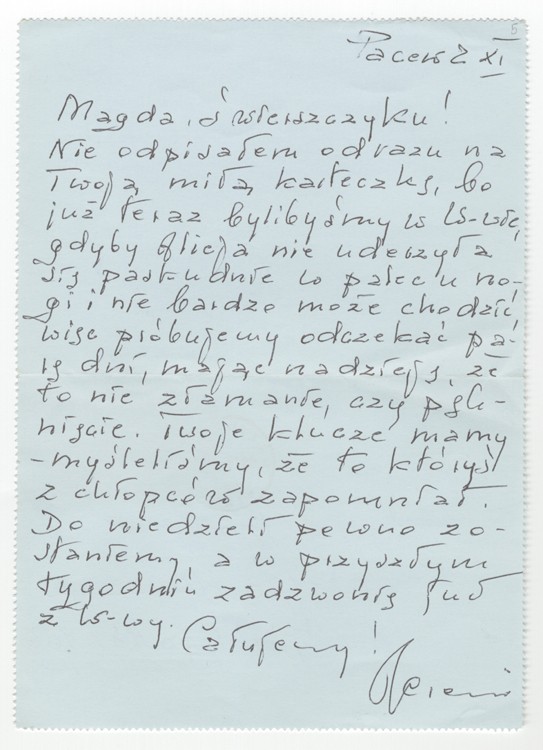 5
Pacew 2 XI
Magda, świerszczyku!
Nie odpisałem odrazu na
Twoją miłą karteczkę, bo
już teraz bylibyśmy w W-wie,
gdyby Alicja nie uderzyła
się paskudnie w palec u no-
gi i nie bardzo może chodzić,
więc próbujemy odczekać pa-
rę dni, mając nadzieję, że
to nie złamanie, czy pęk-
nięcie. Twoje klucze mamy
- myśleliśmy, że to któryś
z chłopców zapomniał.
Do niedzieli pewno zo-
staniemy, a w przyszłym
tygodniu zadzwonię już
z W-wy. Całujemy!